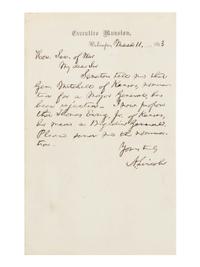 Executive Mansion,
Washington, March 11, 1863
Hon. Sec. of War
My dear Sir
Senators tell me that
Gen. Mitchell of Kansas, nomina-
tion for a Major General has
been rejected. I now propose
that Thomas Ewing, Jr. of Kansas,
be made a Brigadier General.
Please send me the nomina-
tion.
Yours truly
A. Lincoln